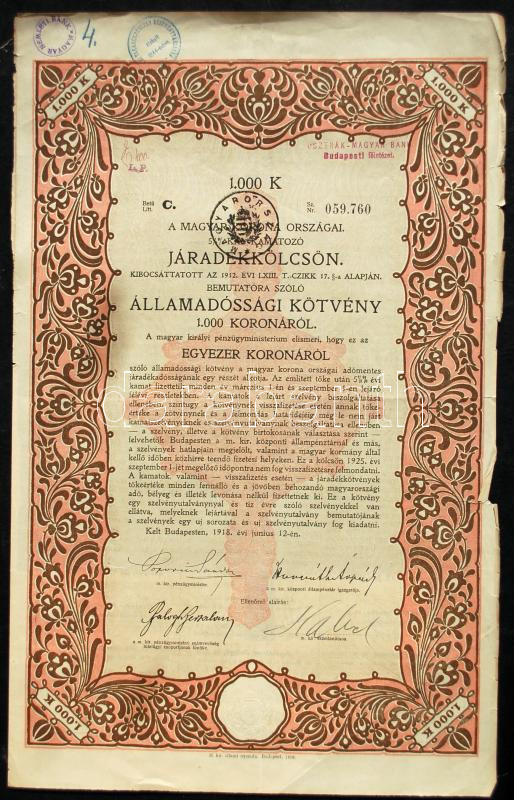 MAGYAR NEMZETI BANK
4.
1.000 K
1.000 K
OSZTRÁK-MAGYAR BANK
Budapesti főintézet.
L. P.
1.000 K
Betű
Litt. C.
Sz.
Nr. 059.760
MAGYARORSZÁG
A MAGYAR KORONA ORSZÁGAI
KAMATOZÓ
JÁRADÉKKÖLCSÖN.
KIBOCSÁTTATOTT AZ 1912. ÉVI LXIII. T.-CZIKK 17. §-a ALAPJÁN.
BEMUTATÓRA SZÓLÓ
ÁLLAMADÓSSÁGI KÖTVÉNY
1.000 KORONÁRÓL.
A magyar királyi pénzügyministerium elismeri, hogy ez az
EGYEZER KORONÁRÓL
szóló államadóssági kötvény a magyar korona országai adómentes
járadékadósságának egy részét alkotja. Az említett tőke után 5½% évi
kamat fizettetik minden év márczius 1-én és szeptember 1-én lejáró
félévi részletekben. A kamatok a lejárt szelvény beszolgáltatása
ellenében, szintugy a kötvénynek visszafizetése esetén annak tőke-
értéke a kötvénynek és a felmondás hatálya idejéig még le nem járt
kamatszelvényeknek és szelvényutalványnak beszolgáltatása ellenében
— a szelvény, illetve a kötvény birtokosának választása szerint —
felvehetők Budapesten a m. kir. központi állampénztárnál és más,
a szelvények hátlapján megjelölt, valamint a magyar kormány által
kellő időben közhirre teendő fizetési helyeken. Ez a kölcsön 1925. évi
szeptember 1-jét megelőző időpontra nem fog visszafizetésre felmondatni.
A kamatok, valamint — visszafizetés esetén — a járadékkötvények
tőkeértéke minden fennálló és a jövőben behozandó magyarországi
adó, bélyeg és illeték levonása nélkül fizettetnek ki. Ez a kötvény
egy szelvényutalvánnyal és tiz évre szóló szelvényekkel van
ellátva, melyeknek lejártával a szelvényutalvány bemutatójának
a szelvények egy uj sorozata és uj szelvényutalvány fog kiadatni.
Kelt Budapesten, 1918. évi junius 12-én.
m. kir. pénzügyminister.
A m. kir. központi állampénztár igazgatója.
Ellenőrző aláirás:
a m. kir. pénzügyministeri számvevőség
hitelügyi csoportjának főnöke.
1.000 K
1.000 K
M. kir. állami nyomda. Budapest, 1918.
darabanth